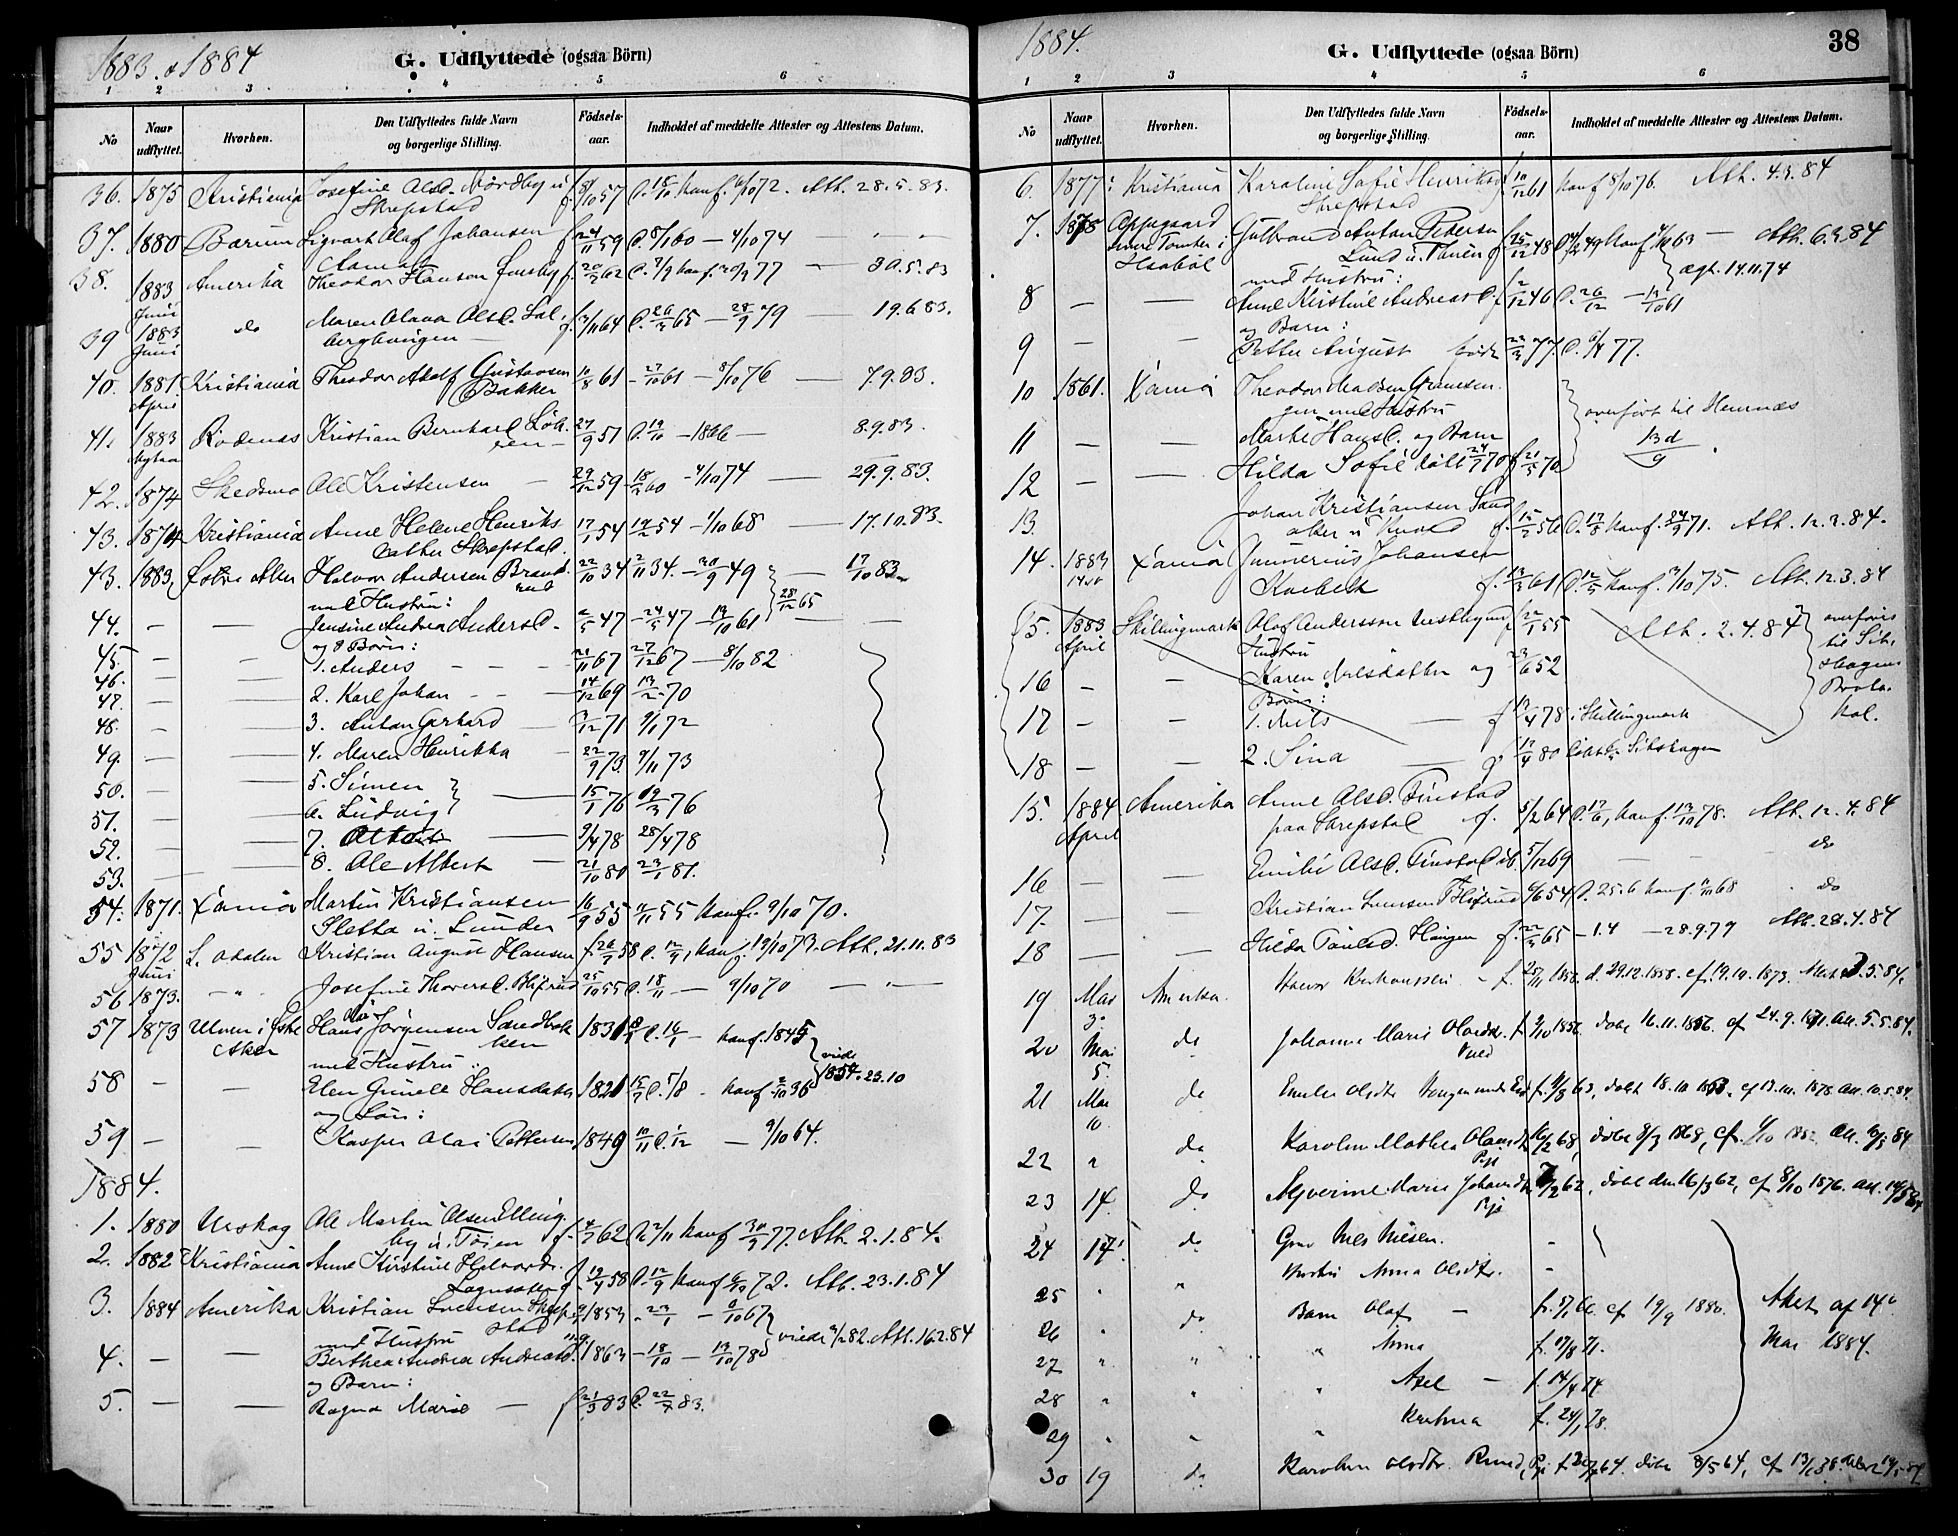 1883 & 1884
G. Udflyttede (ogsaa Börn)
1 2 3 4 5 6
No
Naar udflyttet.
Hvorhen.
Den Udflyttedes fulde Navn og borgerlige Stilling.
Födsels-aar.
Indholdet af meddelte Attester og Attestens Datum.
36. 1875 Kristiania Josefine Olsd. Nordby u/ Skrepstad f. 8/10 57 Konf. 6/10 72. Att. 28.5.83.
37. 1880 Bærum Sigvart Olaf Johansen f. 24/11 59 D. 8/1 60 — 4/10 74 " "
38. 1883 Juni Amerika Theodor Hansen f. 20/2 62 D. 7/9 Konf. 77 — 30.5.83
39 1883 Juni do Maren Olava Olsd. f. 3/11 64 D. 26/3 65 — 28/9 79 — 19.6.83.
40. 1881 April Kristiania Theodor Adolf Gustavsen Bakker 10/8 61 — 27/10 61 — 8/10 76 — 7.9.83.
41. 1883 Rödenes Kristian Bernhard 27/9 51 D. 19/10 — 1866 — 8.9.83.
42. 1874 Skedsmo Ole Kristensen — 29/12 59 18/3 60 — 4/10 74 — 29.9.83.
43. 1874 Kristiania Anne Helene Henriksdatter Skrepstad. 17/1 54 19/2 54 — 1/10 68 — 17.10.83.
43. 1883. Östre Aker Halvor Andersen 22/10 34 2/11 34. — 30/9 49 — 17/10 83
med Hustru:
28/12 65
44. — — Jensine Andrea Andersd. 2/5 47 — 24/5 47 — 13/10 61 — —
og 8 Börn:
45. — — 1. Anders — — — 21/11 67 27/12 67 — 8/10 82
46. — — 2. Karl Johan — — 14/12 69 13/2 70
47. — — 3. Anton Gerhard — 3/12 71 9/1 72
48. — — 4. Maren Henrikka — 22/9 73 9/11 73
49. — — 5. Simen
50. — — 6. Ludvig 15/1 76 19/3 76
51. — — 7. Otto — 9/4 78 28/4 78
52. — — 8. Ole Albert — 21/10 80 23/1 81.
53.
54. 1871. Xania Martin Kristiansen Sletta u. Lunder 16/9 55 11/11 55 Konf. 9/10 70.
55 1872 Juni S. Odalen Kristian August Hansen f. 26/7 58 D. 12/9, Konf. 19/10 73. Att. 21.11.83
56 1873. — " — Josefine Thorersd. 25/10 55 D. 18/11 — 9/10 70 — " —
57 1873 Ulven i Östre Aker Hans Jörgensen 1831 — Konf. 1845
med Hustru:
viede 1854. 23.10
58 — — Elen Gunild Hansdatter 1821 D. 7/8 — Konf. 2/10 36
og Sön:
59. — — Kasper Olai Pettersen 1849 10/11 D. 1/12 — 9/10 64.
1884.
1. 1880 Urskog Ole Martin Olsen Ellingby u. Töien f. 4/7 62 D. 2/11 Konf 30/9 77. Att. 2.1.84.
2. 1882 Kristiania Anne Kirstine Halvordsd. f. 19/4 58 D. 12/9 Konf 6/10 72. Att. 23.1.84
3. 1884 Amerika Kristian Svensen Skrepstad 9/1 1853 " 23/1 — 8/10 67
med Hustru
viede 82. Att. 16.2.84
4. — — Berthea Andrea Andreasd. 1863 — 18/10 — 13/10 78
og Barn:
5. — — Ragna Marie — f. 21/3 83 D. 22/7 83.
1884.
G. Udflyttede (ogsaa Börn)
38
1 2 3 4 5 6
No
Naar udflyttet.
Hvorhen.
Den Udflyttedes fulde Navn og borgerlige Stilling.
Födsels-aar.
Indholdet af meddelte Attester og Attestens Datum.
6. 1877 Kristiania Karoline Sofie Henriksd. Skrepstad f. 10/12 61 Konf 8/10 76. Att. 4.3.84
7. 1878 Oppegaard Gulbrand Anton Pedersen Lund u. Töien f. 25/12 48 Konf 63 — Att. 6.3.84
med Hustru:
ægt. 14.11.74
8 — — Anne Kirstine Andreasd. f. 2/12 46 D. 26/12 — 13/10 61
og Barn:
9 — — Petter August född 22/3 77. D. 9/4 77.
10 1861. Xania Theodor Madsen
med Hustru
overfört til Hemnæs
11 — — Marthe Hansd. og Barn
13d/9
12 — — Hilda Sofie döbt 24/7 70 f. 21/5 70
13. Johan Kristiansen f. 15/2 56 D. 17/3 Konf. 24/9 71. Att. 12.3.84.
14. 1883 Xania Gunnerius Johansen f. 13/3 61 D. 12/5 Konf. 75. Att. 12.3.84
15. 1883 April Skillingmark Olof Andersson f. 22/1 55 Att. 2.4.84
overföres til
Hustru
16 — — Karen Nilsdatter og 23/6 52
Börn:
17 — — 1. Nils — f. 13/4 78 i Skillingmark
18 — — 2. Sina — f. 11/4 80
15. 1884 April Amerika Anne Olsd. Finstad paa Skrepstad f. 5/2 64 D. 17/6, Konf. 13/10 78. Att. 12.4.84
16 — — Emilie Olsd. Finstad ib. 5/12 69 — — — do
17. — — Kristian 9/6 54 D. 25.6 Konf. 68 do
18 — — Hilda Paulsd. Haugen f. 22/3 65 — 1.4 — 28.9.79 Att. 28.4.84
19 Mai 3. Amerika. Halvor Kristiansen — f. 28/11 1858. d. 29.12.1858. cf. 19.10.1873. Attest 3.5.84.
20 Mai 5. do Johanne Marie Olsdtr. f. 1856. döbt 16.11.1856. cf 24.9.1871. Att. 5.5.84.
21 Mai 10. do Emilie Olsdtr. Haugen f. 9/8 63, döbt 18.10 1863. cf 13.10. 1878 Att. 10.5.84.
22 " do Karoline Mathea Olausdtr. Pige 16/2 68, döbt 8/3 1868, cf. 1/10 1882, Att. 10/5 84
23 14. do Alverine Marie Johansdtr. Pige 7/2 62, döbt den 16/3 62, cf 8/10 1876. Att. 14/5 84
24 14. do Grmd. Nils Nilsen. —
25 " " Hustru Anna Olsdtr. —
26 " do Barn Olaf — f. 66. cf 19/9 1880. Attest af 14de
27 " " " Anna f. 17/8 71. Mai 1884.
28 " " " Axel — f. 14/4 74
29 " " " Kristina f. 24/1 78.
30 19 do Karoline Olsdtr. Rund, Pige f. 64. döbt 8/5 64, cf